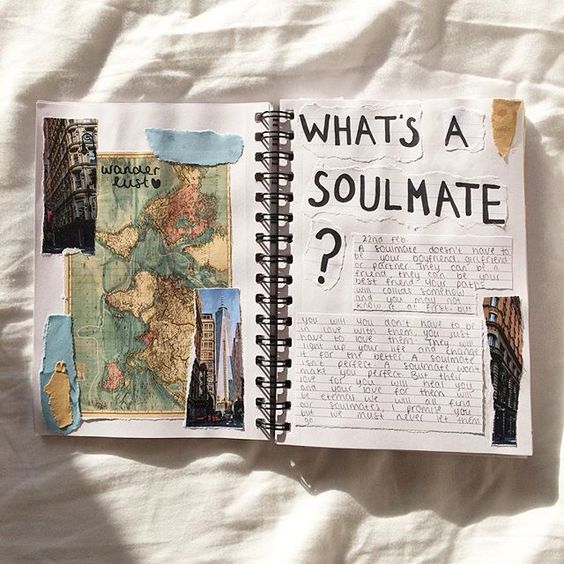 wander
lust
WHAT'S A
SOULMATE
?
22nd Feb
A soulmate doesn't have to
be your boyfriend, girlfriend
or partner. They can be a
friend, they can be your
best friend. Your paths
will collide somehow
and you may not
know it at first but
you will. You don't have to be
in love with them, you just
have to love them. They will
open up your life and change
it for the better. A soulmate
isn't perfect. A soulmate won't
make you perfect. But their
love for you will heal you
and your love for them will
be eternal. We will all find
our soulmates, I promise you
but we must never let them
go